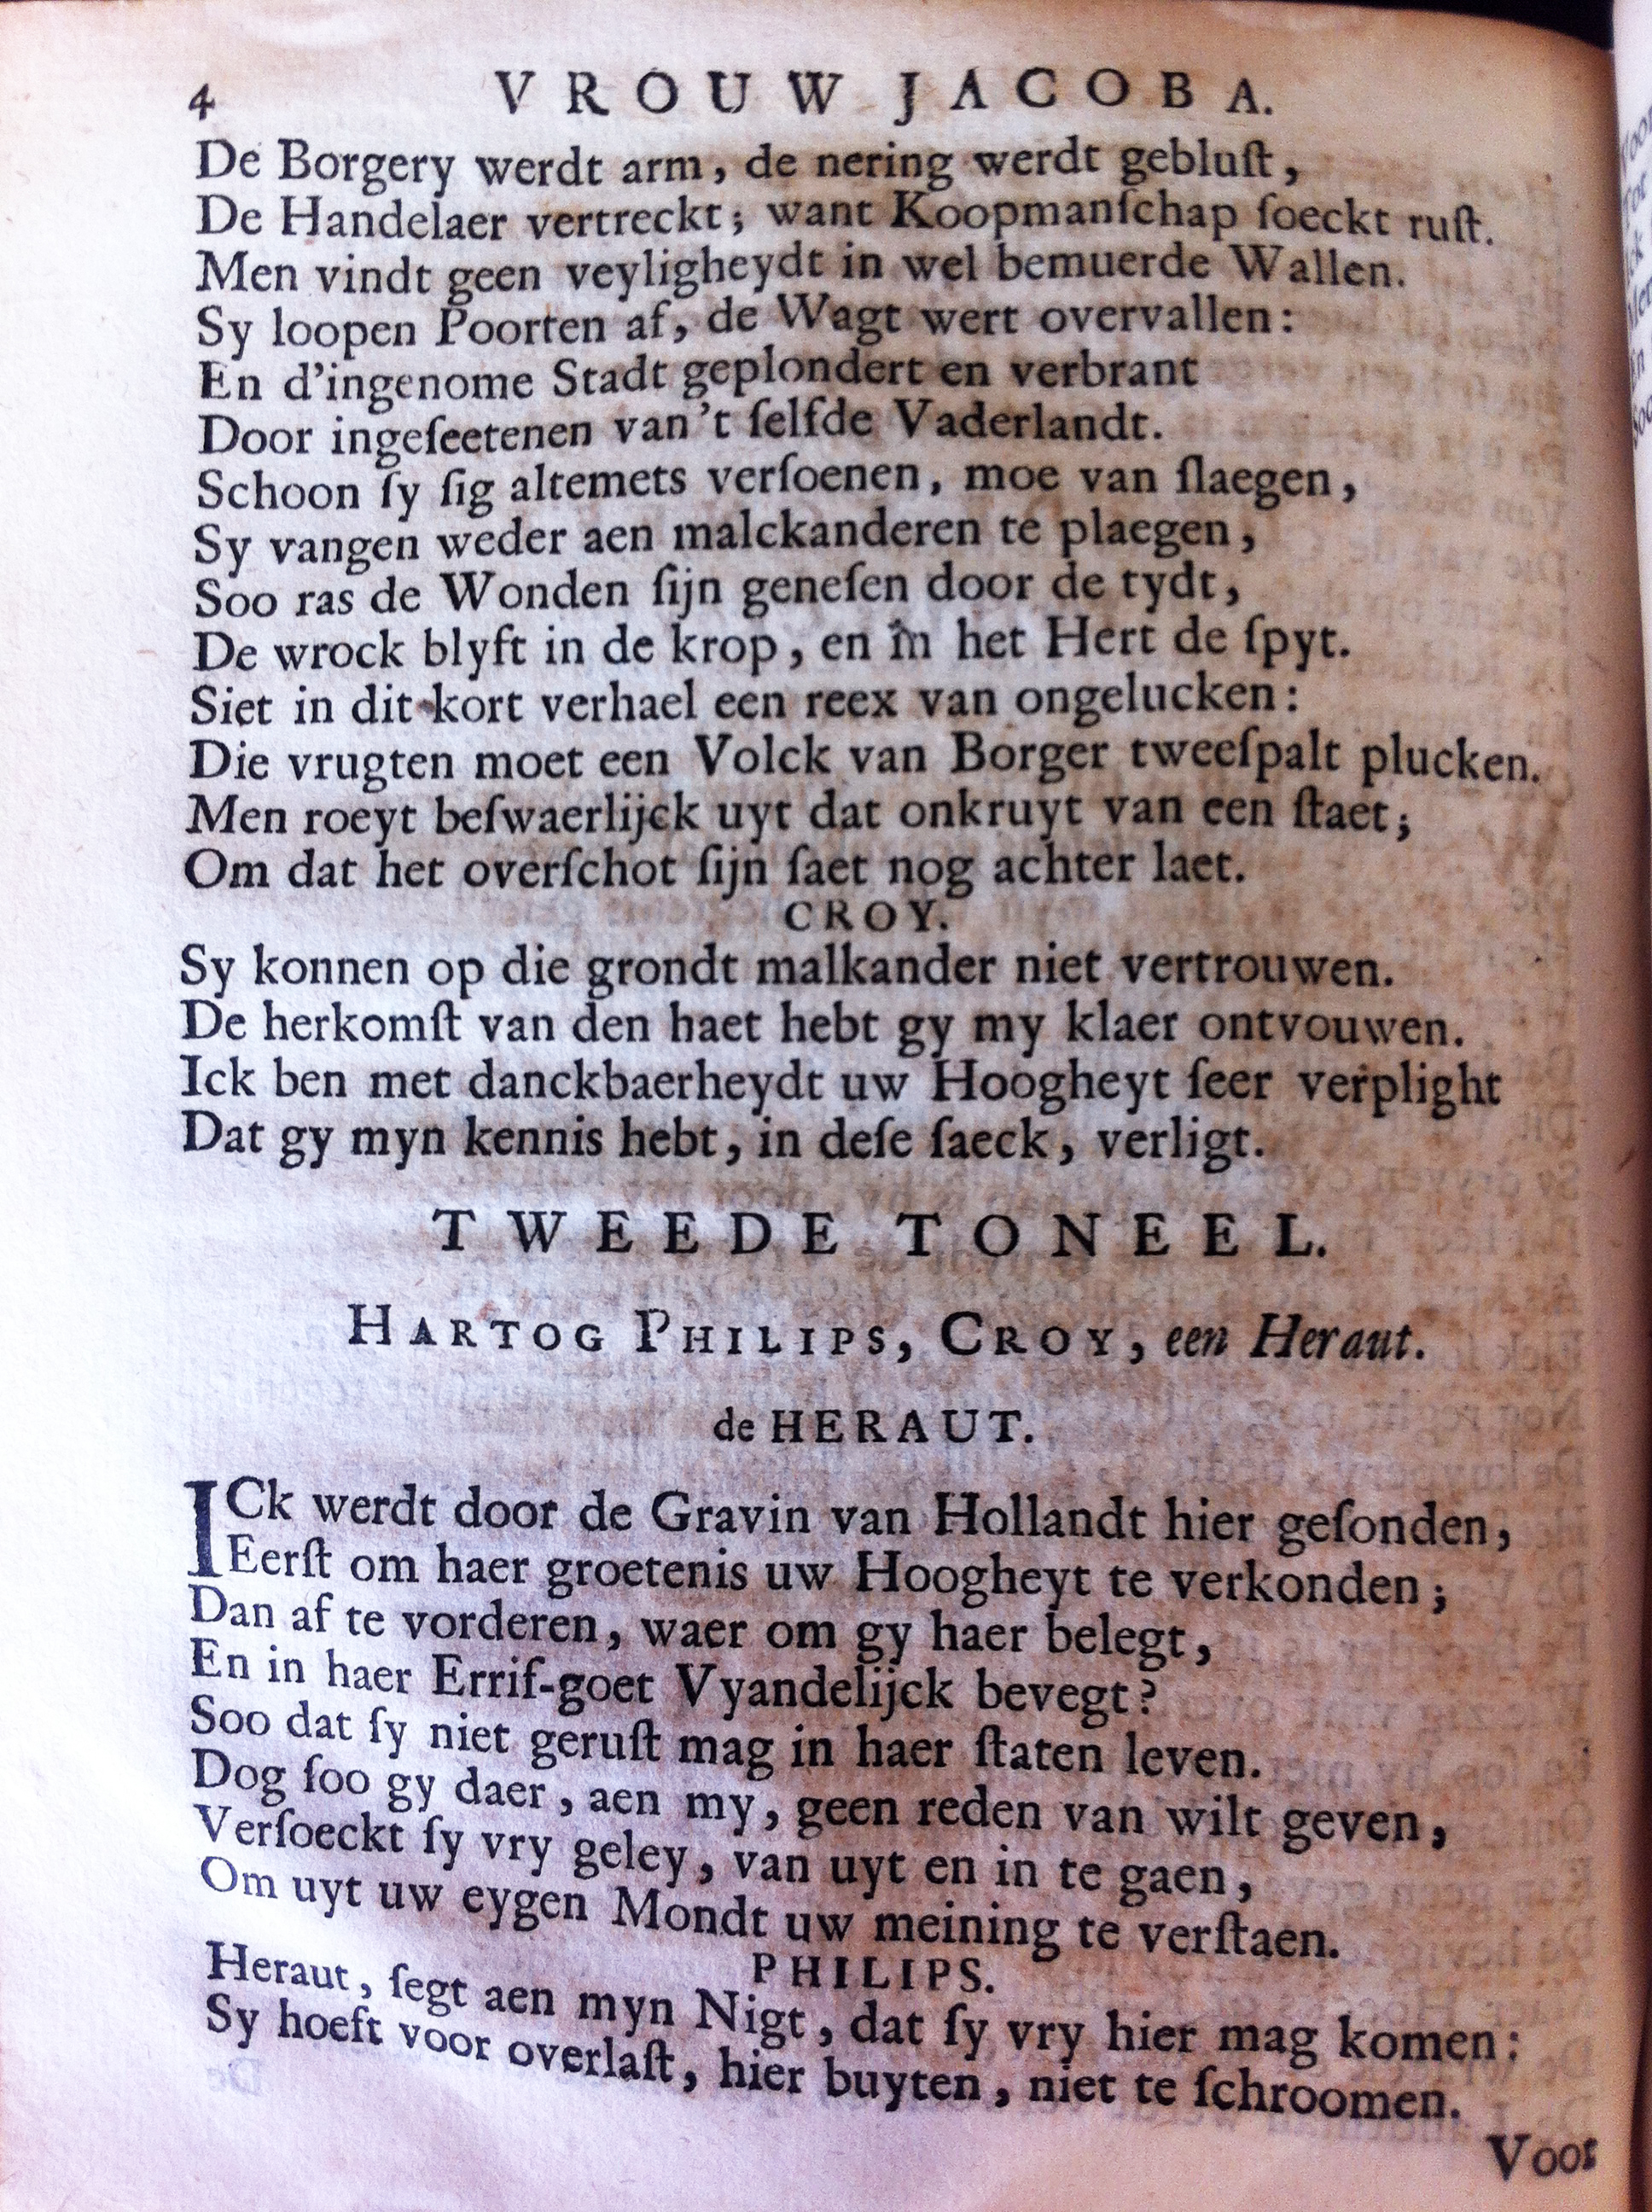 4 VROUW JACOBA.
De Borgery werdt arm, de nering werdt gebluſt,
De Handelaer vertreckt; want Koopmanſchap ſoeckt ruſt.
Men vindt geen veyligheydt in wel bemuerde Wallen.
Sy loopen Poorten af, de Wagt wert overvallen:
En d'ingenome Stadt geplondert en verbrant
Door ingeſeetenen van't ſelfde Vaderlandt.
Schoon ſy ſig altemets verſoenen, moe van ſlaegen,
Sy vangen weder aen malckanderen te plaegen,
Soo ras de Wonden ſijn geneſen door de tydt,
De wrock blyft in de krop, en in het Hert de ſpyt.
Siet in dit kort verhael een reex van ongelucken:
Die vrugten moet een Volck van Borger tweeſpalt plucken.
Men roeyt beſwaerlijck uyt dat onkruyt van een ſtaet;
Om dat het overſchot ſijn ſaet nog achter laet.
CROY.
Sy konnen op die grondt malkander niet vertrouwen.
De herkomſt van den haet hebt gy my klaer ontvouwen.
Ick ben met danckbaerheydt uw Hoogheyt ſeer verplight
Dat gy myn kennis hebt, in deſe ſaeck, verligt.
TWEEDE TONEEL.
HARTOG PHILIPS, CROY, een Heraut.
de HERAUT.
ICk werdt door de Gravin van Hollandt hier geſonden,
Eerſt om haer groetenis uw Hoogheyt te verkonden;
Dan af te vorderen, waer om gy haer belegt,
En in haer Errif-goet Vyandelijck bevegt?
Soo dat ſy niet geruſt mag in haer ſtaten leven.
Dog ſoo gy daer, aen my, geen reden van wilt geven,
Verſoeckt ſy vry geley, van uyt en in te gaen,
Om uyt uw eygen Mondt uw meining te verſtaen.
PHILIPS.
Heraut, ſegt aen myn Nigt, dat ſy vry hier mag komen:
Sy hoeft voor overlaſt, hier buyten, niet te ſchroomen.
Voor